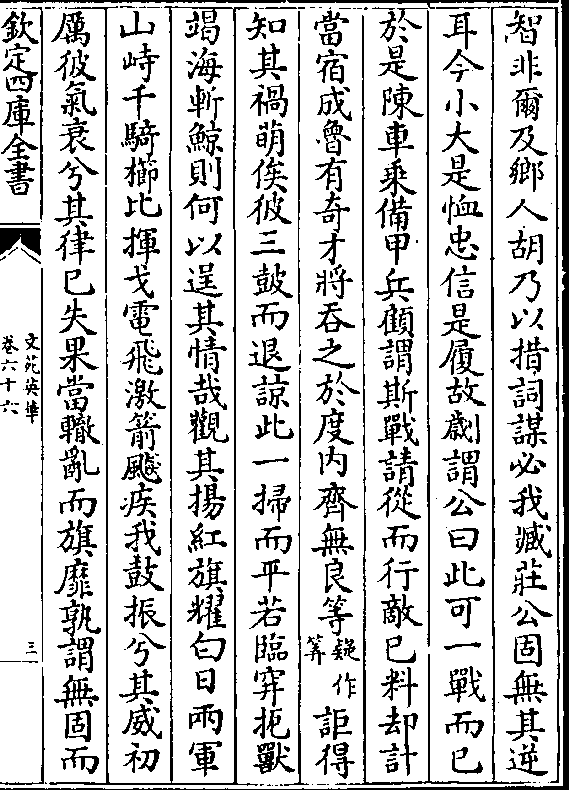 智非爾及鄉人胡乃以措詞謀必我臧莊公固無其逆
耳今小大是恤忠信是履故劌謂公曰此可一戰而已
於是陳車乘備甲兵顧謂斯戰請從而行敵已料却計
當宿成魯有奇才將吞之於度内齊無良等疑作筭詎得
知其禍萌俟彼三鼓而退諒此一掃而平若臨穽扼獸
竭海斬鯨則何以逞其情哉觀其揚紅旗耀白日兩軍
山峙千騎櫛比揮戈電飛激箭飈疾我鼓振兮其威初
厲彼氣衰兮其律已失果當轍亂而旗靡孰謂無固而
欽定四庫全書
文苑英華
卷六十六
三